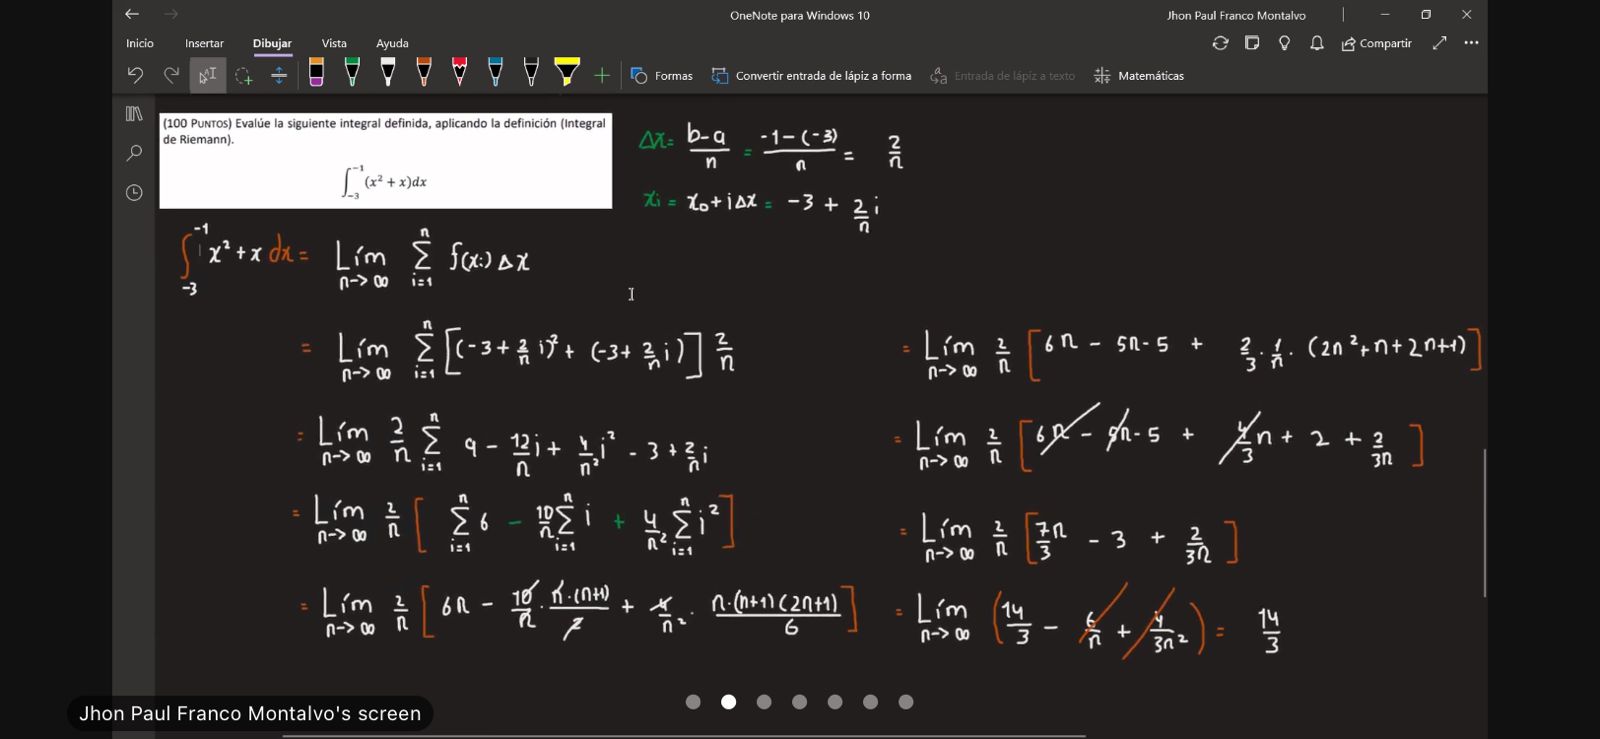 OneNote para Windows 10
Jhon Paul Franco Montalvo
Inicio Insertar Dibujar Vista Ayuda
Compartir
Formas Convertir entrada de lápiz a forma Entrada de lápiz a texto Matemáticas
(100 PUNTOS) Evalúe la siguiente integral definida, aplicando la definición (Integral
de Riemann).
∫_{-3}^{-1} (x² + x)dx
Δx = (b-a)/n = (-1-(-3))/n = 2/n
xi = x₀ + iΔx = -3 + 2/n i
∫_{-3}^{-1} x² + x dx = Lím_{n->∞} Σ_{i=1}^{n} f(xi) Δx
= Lím_{n->∞} Σ_{i=1}^{n} [(-3 + 2/n i)² + (-3 + 2/n i)] 2/n
= Lím_{n->∞} 2/n Σ_{i=1}^{n} 9 - 12/n i + 4/n² i² - 3 + 2/n i
= Lím_{n->∞} 2/n [Σ_{i=1}^{n} 6 - 10/n Σ_{i=1}^{n} i + 4/n² Σ_{i=1}^{n} i²]
= Lím_{n->∞} 2/n [6n - 10/n · n·(n+1)/2 + 4/n² · n·(n+1)(2n+1)/6]
= Lím_{n->∞} 2/n [6n - 5n - 5 + 2/3 · 1/n · (2n² + n + 2n + 1)]
= Lím_{n->∞} 2/n [6n - 5n - 5 + 4/3 n + 2 + 2/3n]
= Lím_{n->∞} 2/n [7/3 n - 3 + 2/3n]
= Lím_{n->∞} (14/3 - 6/n + 4/3n²) = 14/3
Jhon Paul Franco Montalvo's screen